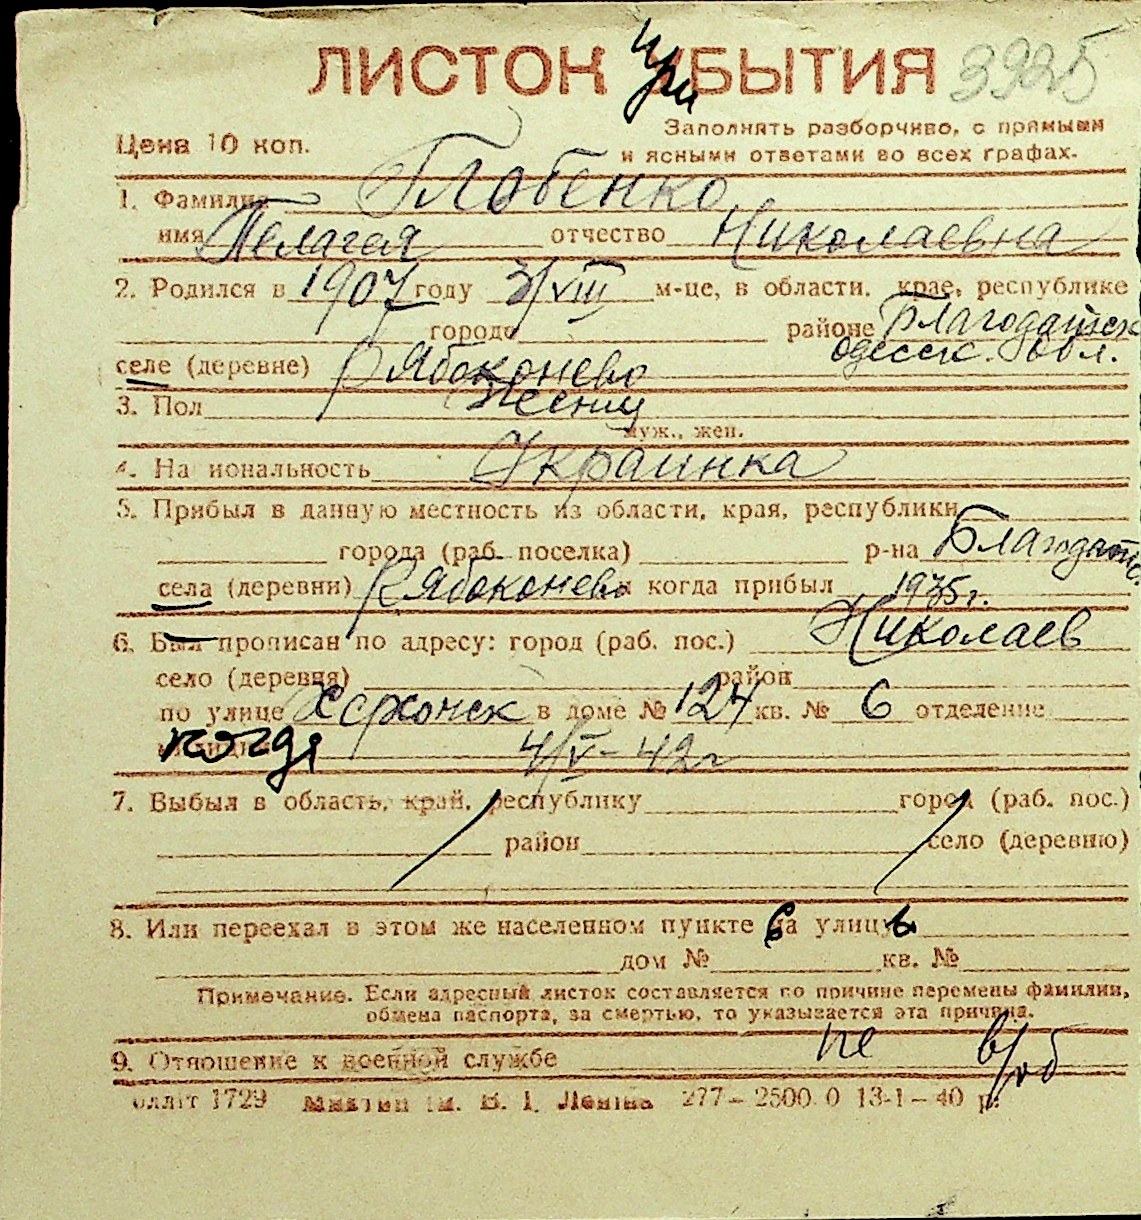 ЛИСТОК при БЫТИЯ 3925
Цена 10 коп.
Заполнять разборчиво, с прямыми
и ясными ответами во всех графах.
1. Фамилия Глобенко
имя Пелагея отчество Николаевна
2. Родился в 1907 году 3/VIII м-це, в области, крае, республике
городе районе Благодатск
Одесск. обл.
селе (деревне) Рябоконево
3. Пол женщ
муж., жен.
4. На иональность Украинка
5. Прибыл в данную местность из области, края, республики
города (раб. поселка) р-на Благодатн
села (деревни) Рябоконево и когда прибыл 1935г.
6. Был прописан по адресу: город (раб. пос.) Николаев
село (деревня) район
по улице Херсонск в доме № 124 кв. № 6 отделение
когда 4/V-42г
7. Выбыл в область, край, республику город (раб. пос.)
район село (деревню)
8. Или переехал в этом же населенном пункте на улицу
дом № кв. №
Примечание. Если адресный листок составляется по причине перемены фамилии,
обмена паспорта, за смертью, то указывается эта причина.
9. Отношение к военной службе не в/об
1729 им. В. І. Леніна 277-2500.0 13-1-40 р.